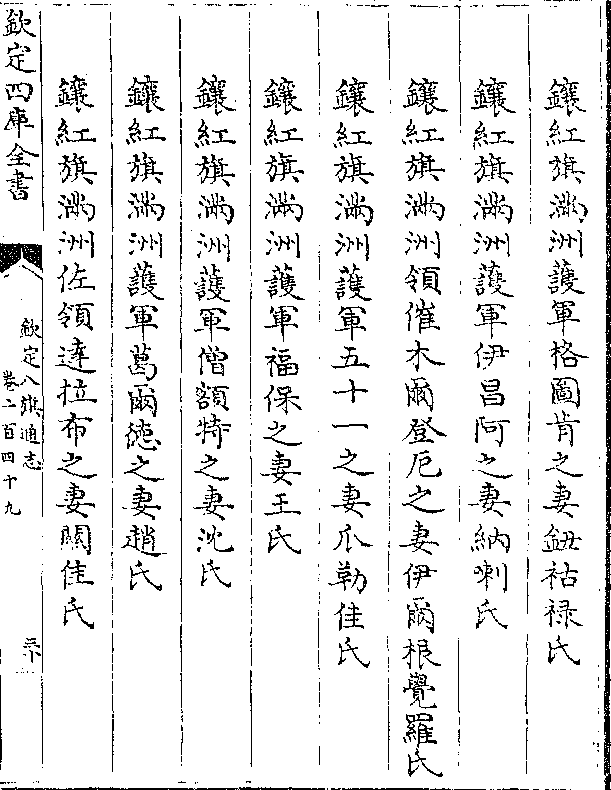 鑲紅旗滿洲䕶軍格圖肯之妻鈕祜禄氏
鑲紅旗滿洲䕶軍伊昌阿之妻納喇氏
鑲紅旗滿洲領催木爾登厄之妻伊爾根覺羅氏
鑲紅旗滿洲䕶軍五十一之妻爪勒佳氏
鑲紅旗滿洲䕶軍福保之妻王氏
鑲紅旗滿洲䕶軍僧額犄之妻沈氏
鑲紅旗滿洲䕶軍葛爾德之妻趙氏
鑲紅旗滿洲佐領達拉布之妻關佳氏
欽定四庫全書
欽定八旗通志
卷二百四十九